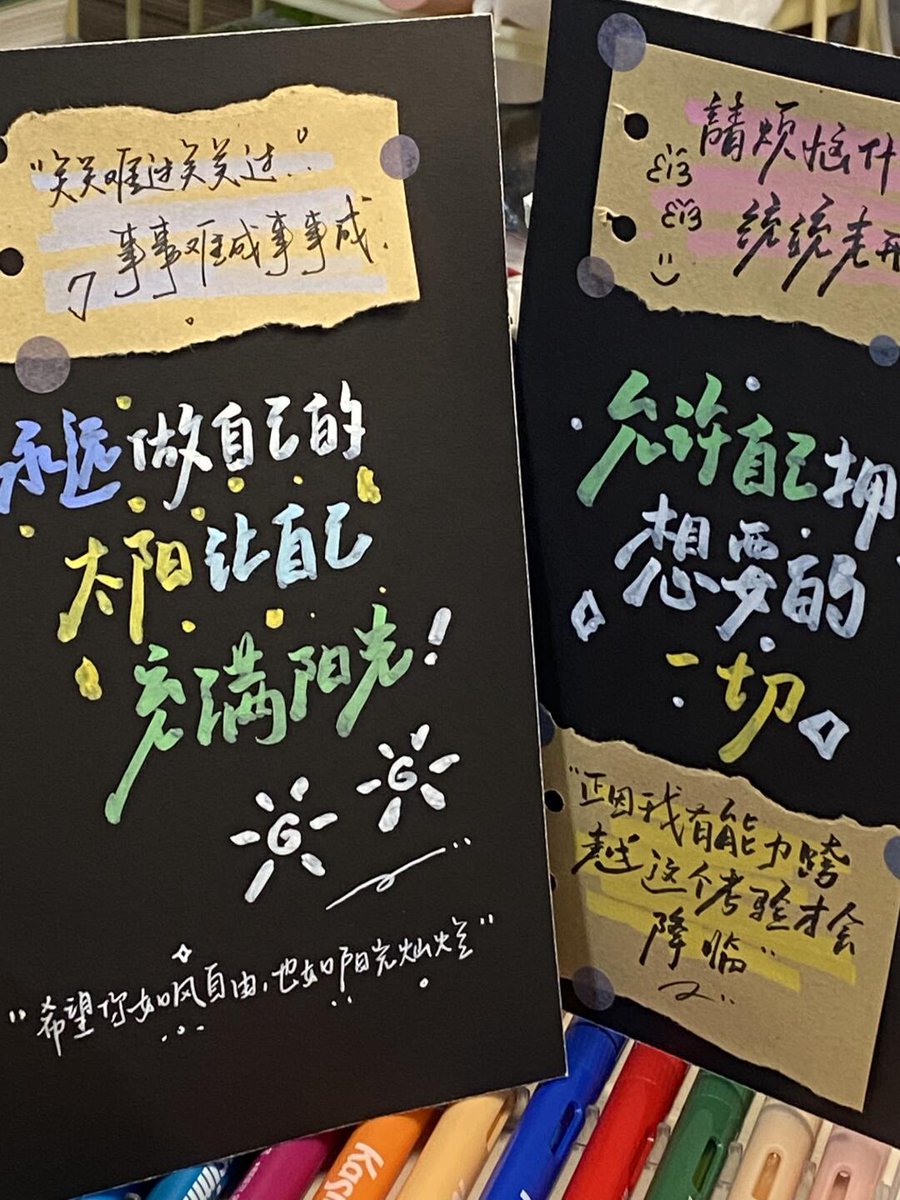 "关关难过关关过"
事事难成事事成.
永远做自己的
太阳让自己
充满阳光!
G G
"希望你如风自由,也如阳光灿烂"
請烦恼什
统统走开
允许自己拥
想要的
一切
"正因我有能力跨
越这个考验才会
降临"